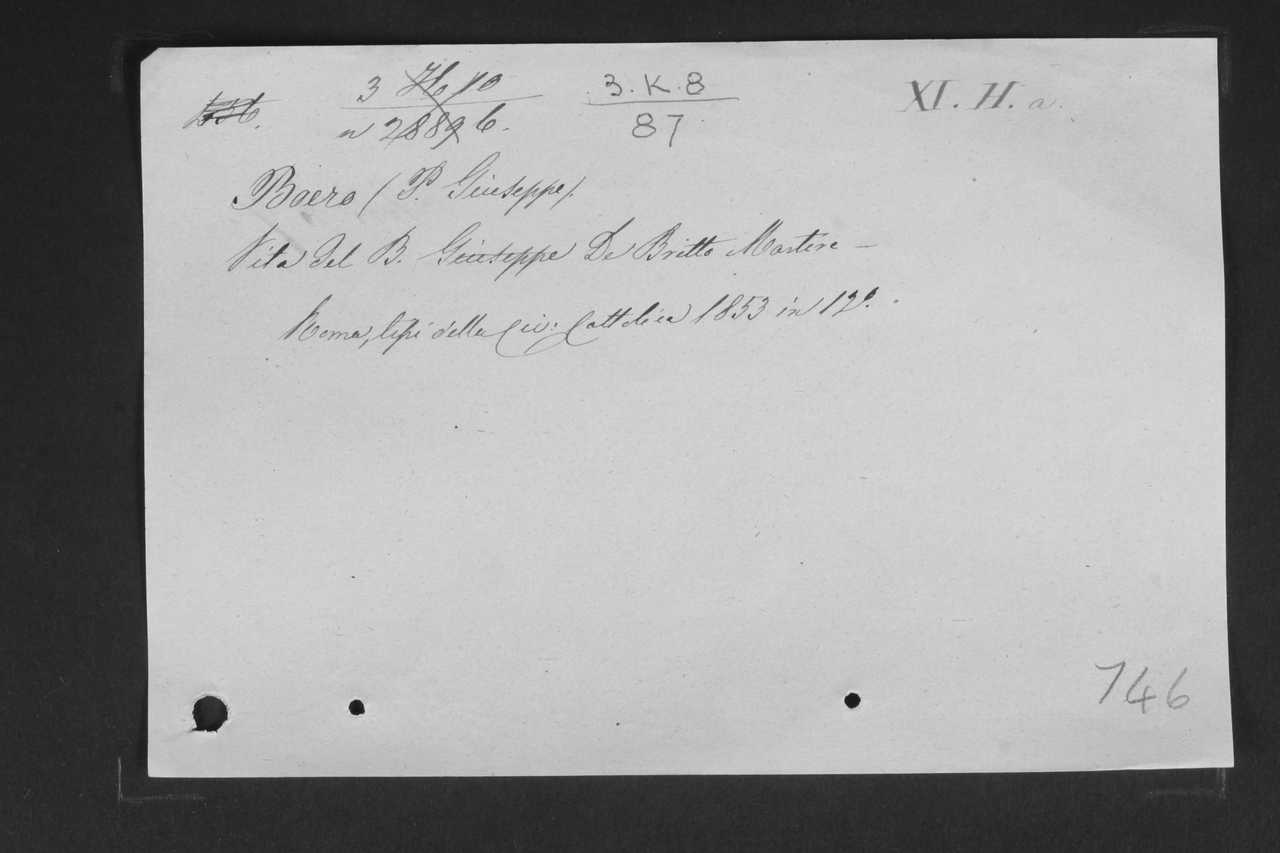 3 H 10 3.K.8 XI. H. a.
n 2889 6. 87
Boero (P. Giuseppe).
Vita del B. Giuseppe De Britto Martire –
Roma, tipi della Civ: Cattolica 1853 in 12º.
746